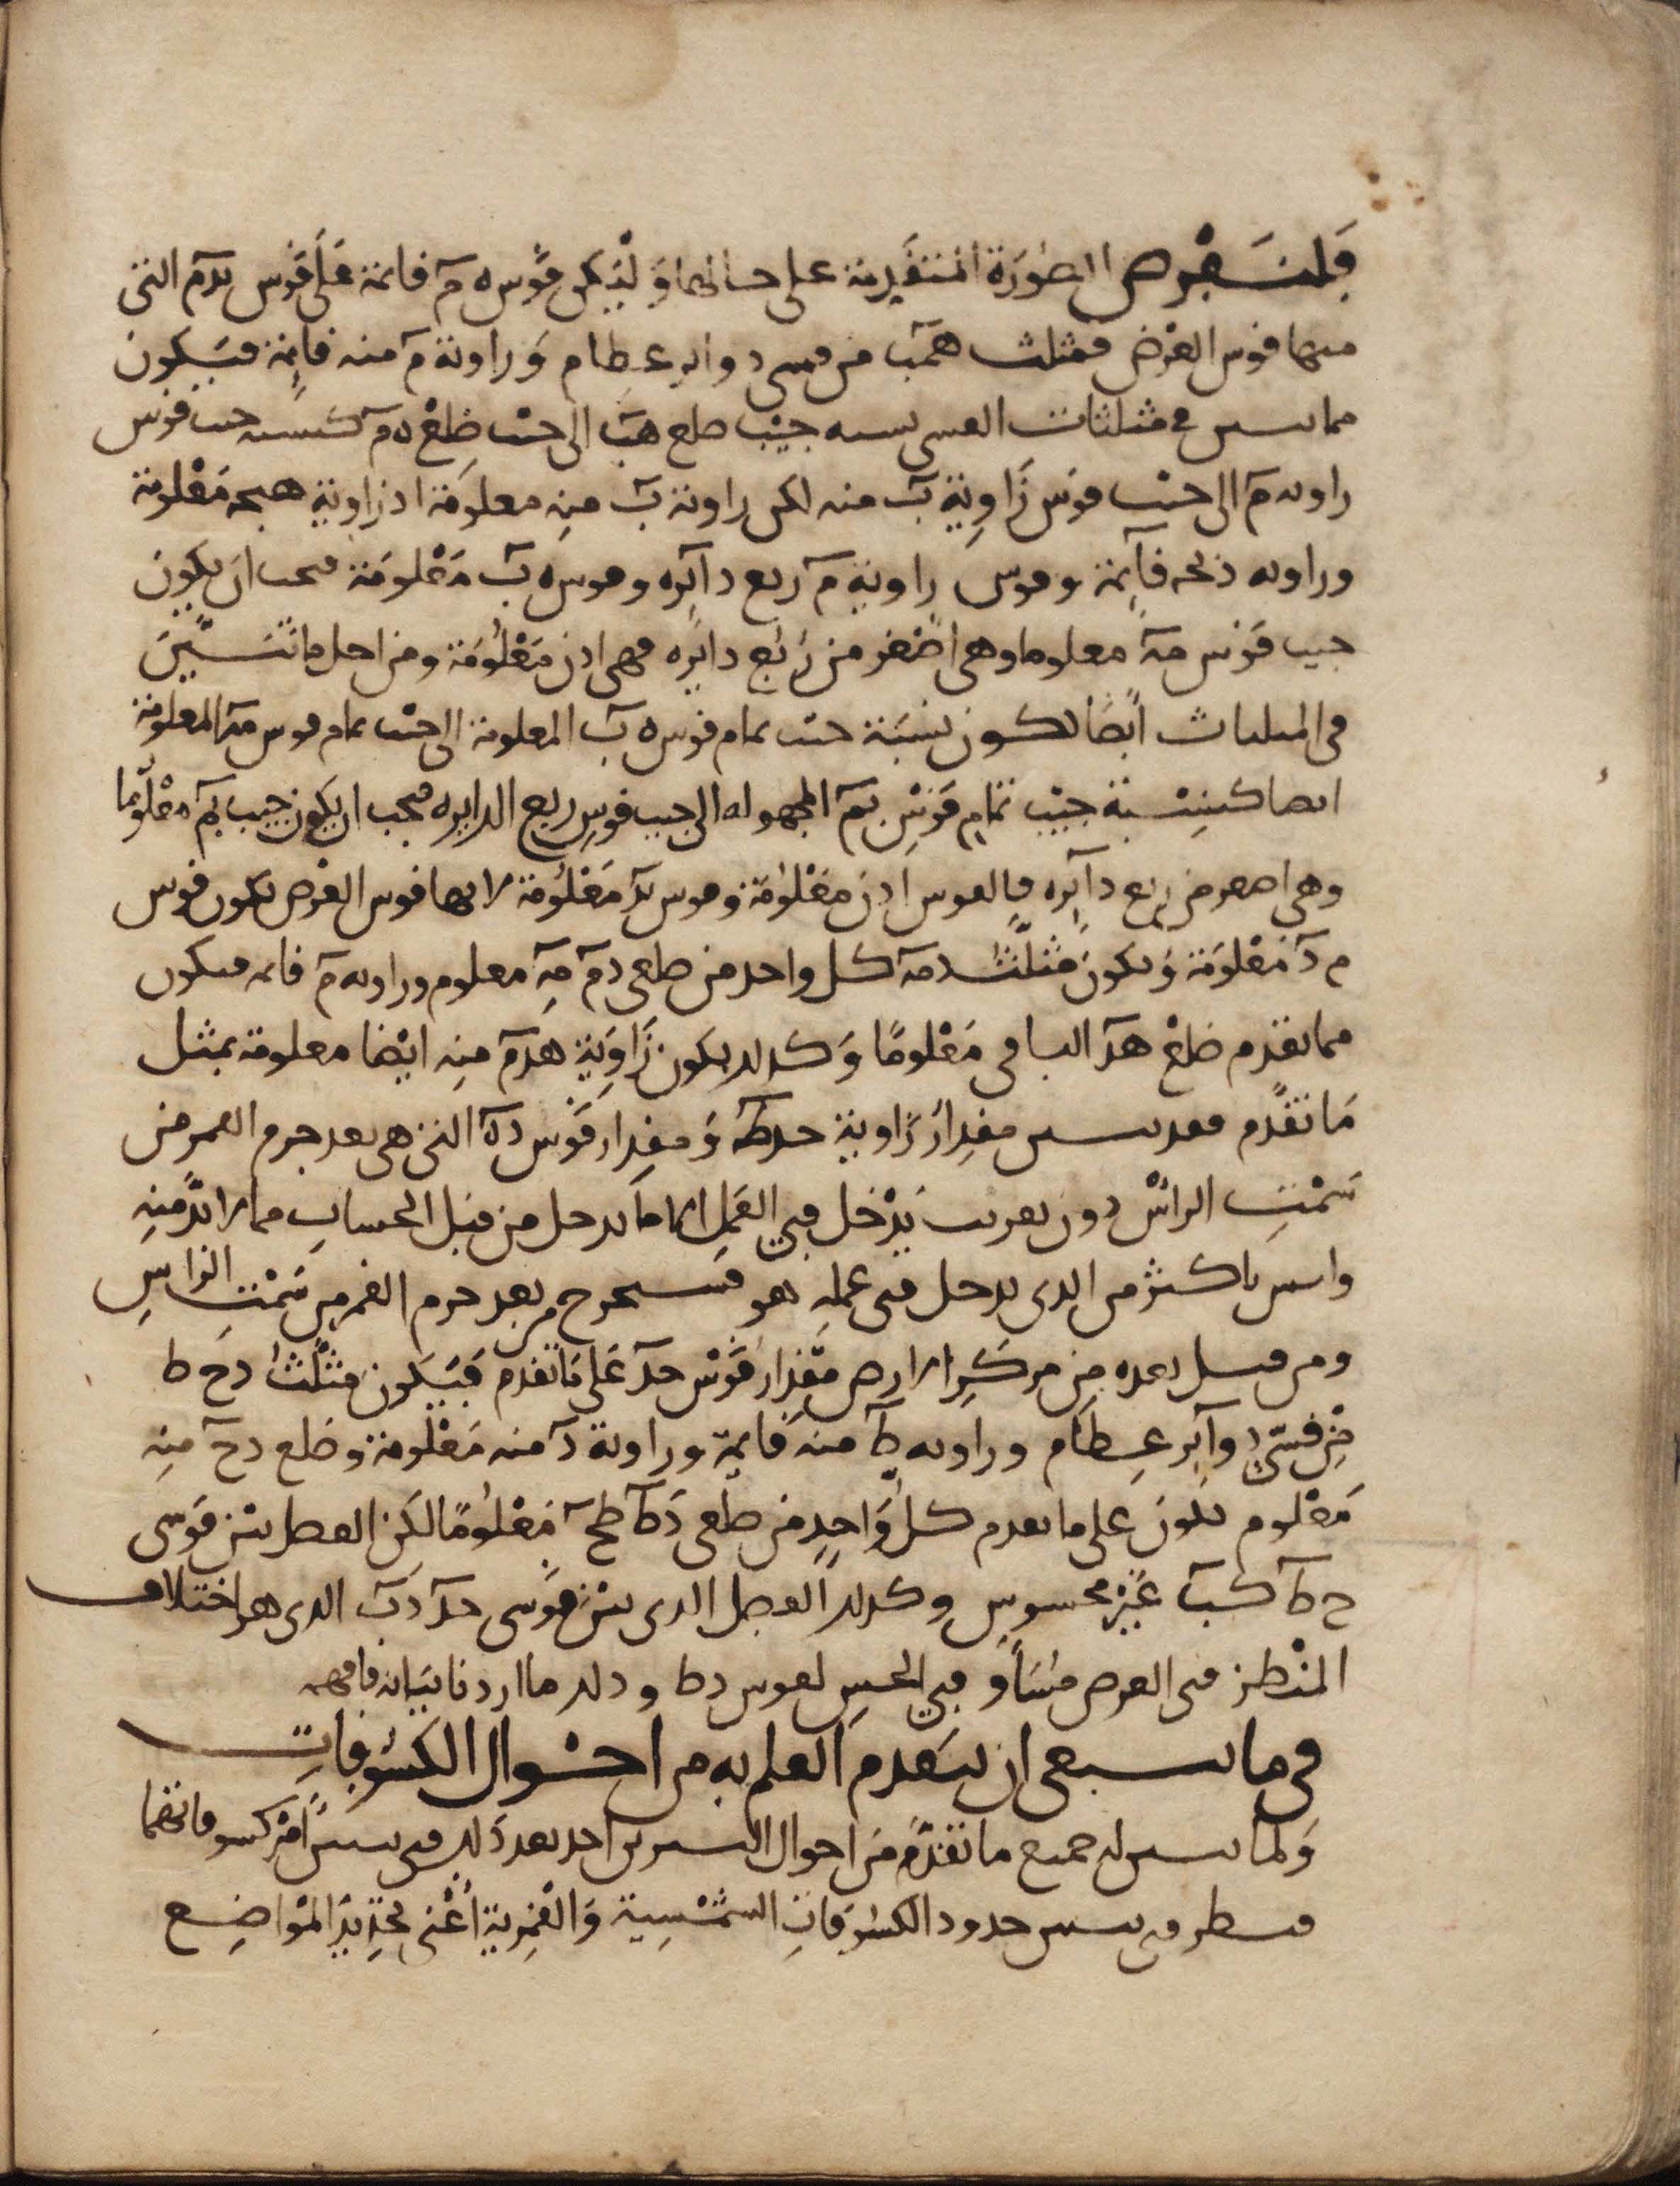 فلنفرض الصورة المتقدمة على حالها وليكن قوس ه م قائمة على قوس بدم التي
منها قوس العرض فمثلث همب من قسي دوائر عظام وزاوية م منه قائمة فيكون
مما تبين في مثلثات القسي نسبة جيب ضلع هب الى جيب ضلع ه م كنسبة جيب قوس
زاوية م الى جيب قوس زاوية ب منه لكن زاوية ب منه معلومة اذ زاوية هبح معلومة
وزاوية دبح قائمة وقوس زاوية م ربع دائره وقوس ه ب معلومة فيجب ان يكون
جيب قوس مه معلوما وهي اصغر من ربع دائره فهي اذن معلومة ومن اجل ما تبين
في المثلثات ايضا تكون نسبة جيب تمام قوس ه ب المعلومة الى جيب تمام قوس مه المعلومة
ايضا كنسبة جيب تمام قوس بم المجهوله الى جيب قوس ربع الدايره فيجب ان يكون جيب بم معلوما
وهي اصغر من ربع دآئره فالقوس اذن معلومة وقوس بد معلومة لانها قوس العرض تكون قوس
م د معلومة ويكون مثلث دمه كل واحد من ضلعي دم مه معلوم وزاوية م قائمه فيكون
مما تقدم ضلع هد الباقي معلومًا وكذلك يكون زاوية هدم منه ايضا معلومة بمثل
ما تقدم فقد تبين مقدار زاوية حدط ومقدار قوس ده التي هي بعد جرم القمر من
سمت الراس دون تقريب يدخل في العمل انما ما يدخل من قبل الحساب مما لا بد منه
وليس باكثر من الذي يدخل في عمله هو فنستخرج من بعد جرم القمر من سمت الراس
ومن قبل بعده من مركز الارض مقدار قوس حد على ما تقدم فيكون مثلث دح ط
من قسي دوآئر عظام وزاويه ط منه قايمة وزاوية د منه معلومة وضلع دح منه
معلوم يكون على ما تقدم كل واحد من ضلعي دط طح معلومًا لكن الفضل بين قوسي
ح ط كب غير محسوس وكذلك الفضل الذي بين قوسي حد دب الذي هو اختلاف
المنظر في العرض مساو في الحس لقوس دط وذلك ما اردنا بيانه فافهمه
في ما ينبغي ان يتقدم العلم به من احوال الكسوفات
ولما تبين له جميع ما تقدم من احوال النيرين اخذ بعد ذلك في تبيين امر كسوفاتهما
فنظر في تبيين حدود الكسوفات الشمسية والقمرية اعني تحديد المواضع